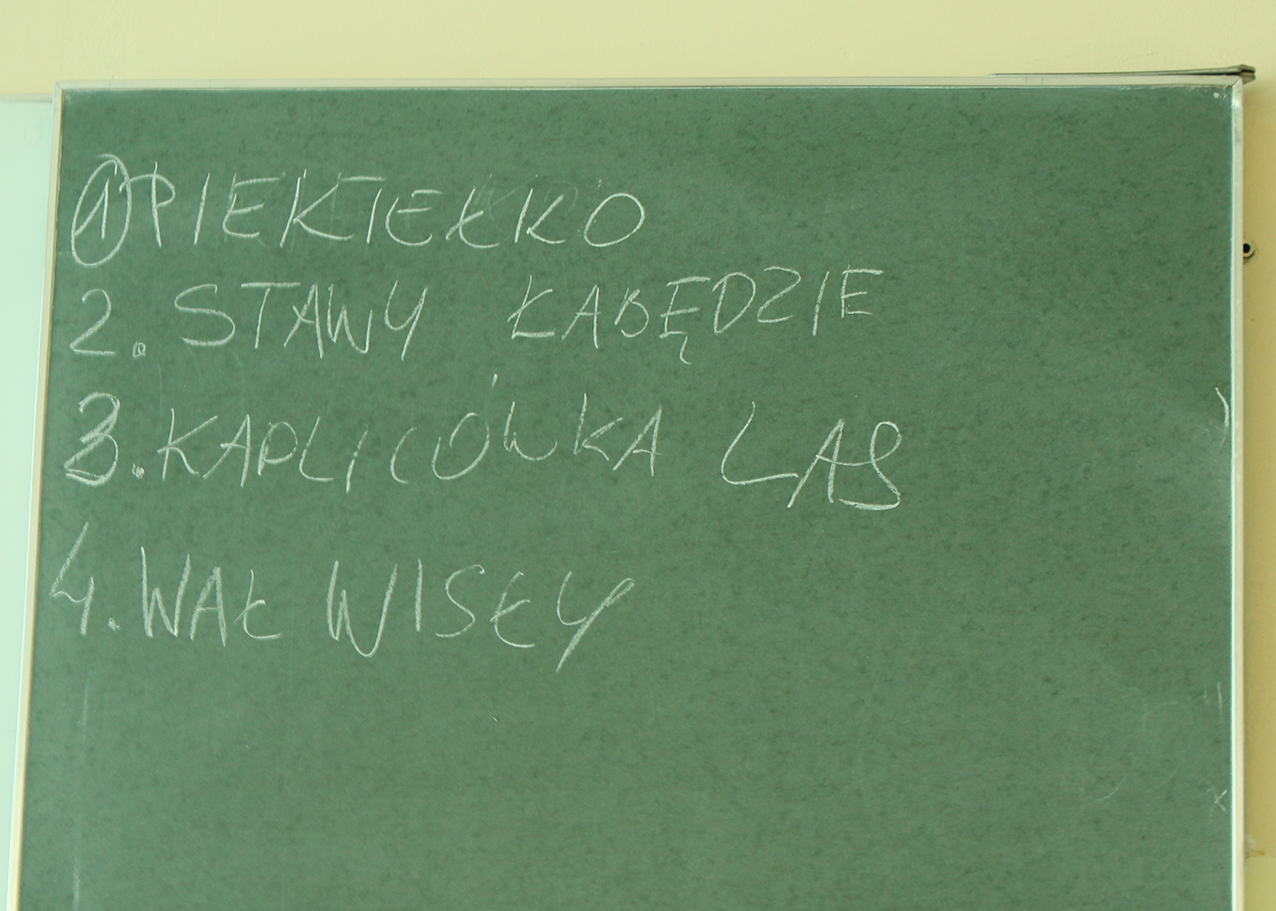 1 PIEKIEŁKO
2. STAWY ŁABĘDZIE
3. KAPLICÓWKA LAS
4. WAŁ WISŁY